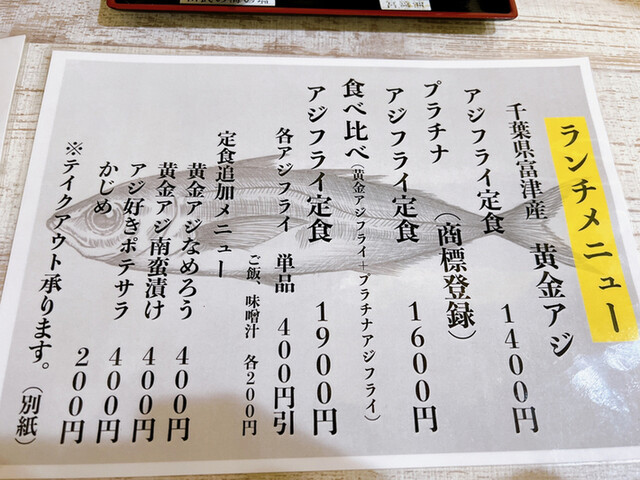 ランチメニュー
千葉県富津産 黄金アジ
アジフライ定食 1400円
プラチナ (商標登録)
アジフライ定食 1600円
食べ比べ(黄金アジフライ+プラチナアジフライ)
アジフライ定食 1900円
各アジフライ 単品 400円引
ご飯、味噌汁 各200円
定食追加メニュー
黄金アジなめろう 400円
黄金アジ南蛮漬け 400円
アジ好きポテサラ 400円
かじめ 200円
※テイクアウト承ります。(別紙)